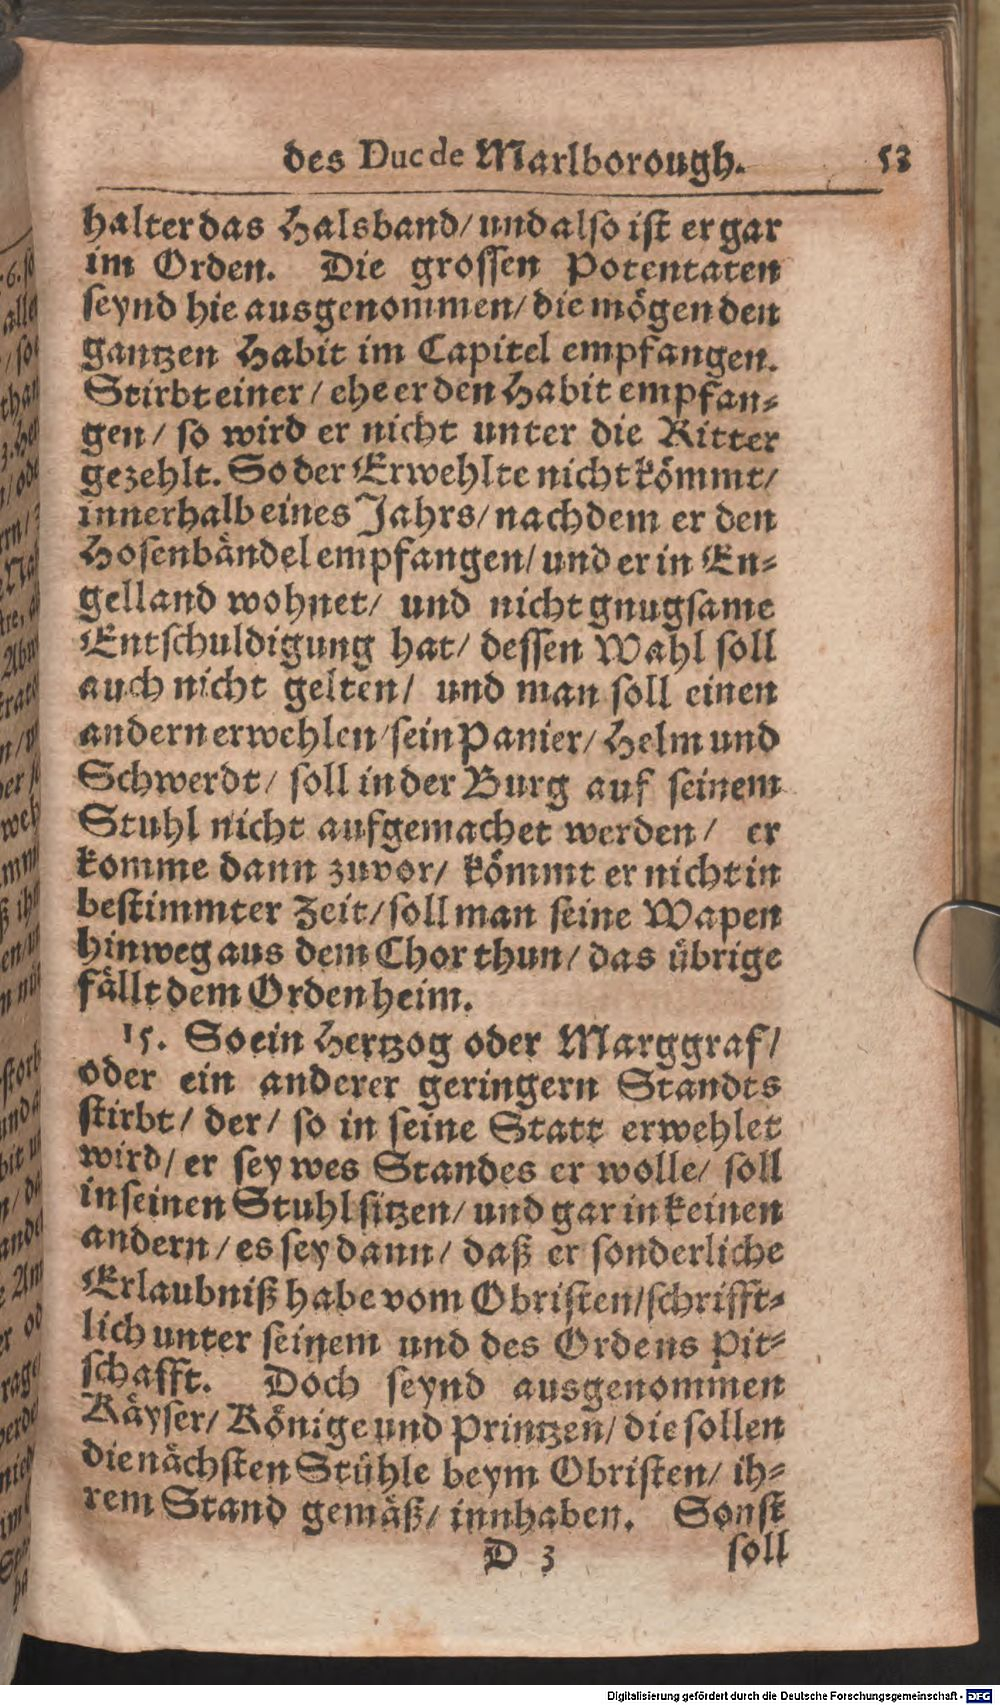 des Duc de Marlborough. 53
halter das Halsband/ und also ist er gar
im Orden. Die grossen Potentaten
seynd hie ausgenommen/ die mögen den
gantzen Habit im Capitel empfangen.
Stirbt einer/ ehe er den Habit empfan-
gen/ so wird er nicht unter die Ritter
gezehlt. So der Erwehlte nicht kömmt/
innerhalb eines Jahrs/ nachdem er den
Hosenbändel empfangen/ und er in En-
gelland wohnet/ und nicht gnugsame
Entschuldigung hat/ dessen Wahl soll
auch nicht gelten/ und man soll einen
andern erwehlen/ sein Panier/ Helm und
Schwerdt/ soll in der Burg auf seinem
Stuhl nicht aufgemachet werden/ er
komme dann zuvor/ kömmt er nicht in
bestimmter Zeit/ soll man seine Wapen
hinweg aus dem Chor thun/ das übrige
fällt dem Orden heim.
15. So ein Hertzog oder Marggraf/
oder ein anderer geringern Standts
stirbt/ der/ so in seine Statt erwehlet
wird/ er sey wes Standes er wolle/ soll
in seinen Stuhl sitzen/ und gar in keinen
andern/ es sey dann/ daß er sonderliche
Erlaubniß habe vom Obristen/ schrifft-
lich unter seinem und des Ordens Pit-
schafft. Doch seynd ausgenommen
Käyser/ Könige und Printzen/ die sollen
die nächsten Stühle beym Obristen/ ih-
rem Stand gemäß/ innhaben. Sonst
D 3 soll
Digitalisierung gefördert durch die Deutsche Forschungsgemeinschaft - DFG